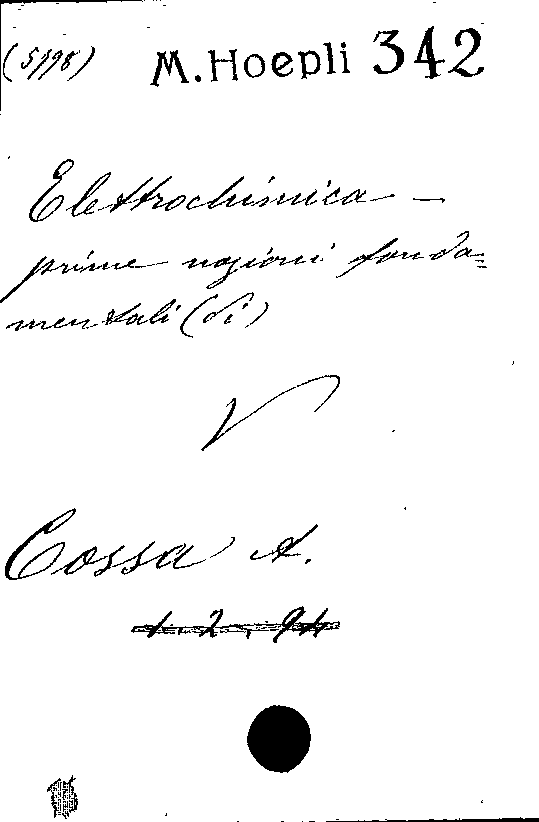 (5/98) M. Hoepli 342
Elettrochimica —
prime nozioni fonda=
mentali (di)
V
Cossa A.
1.2, 94